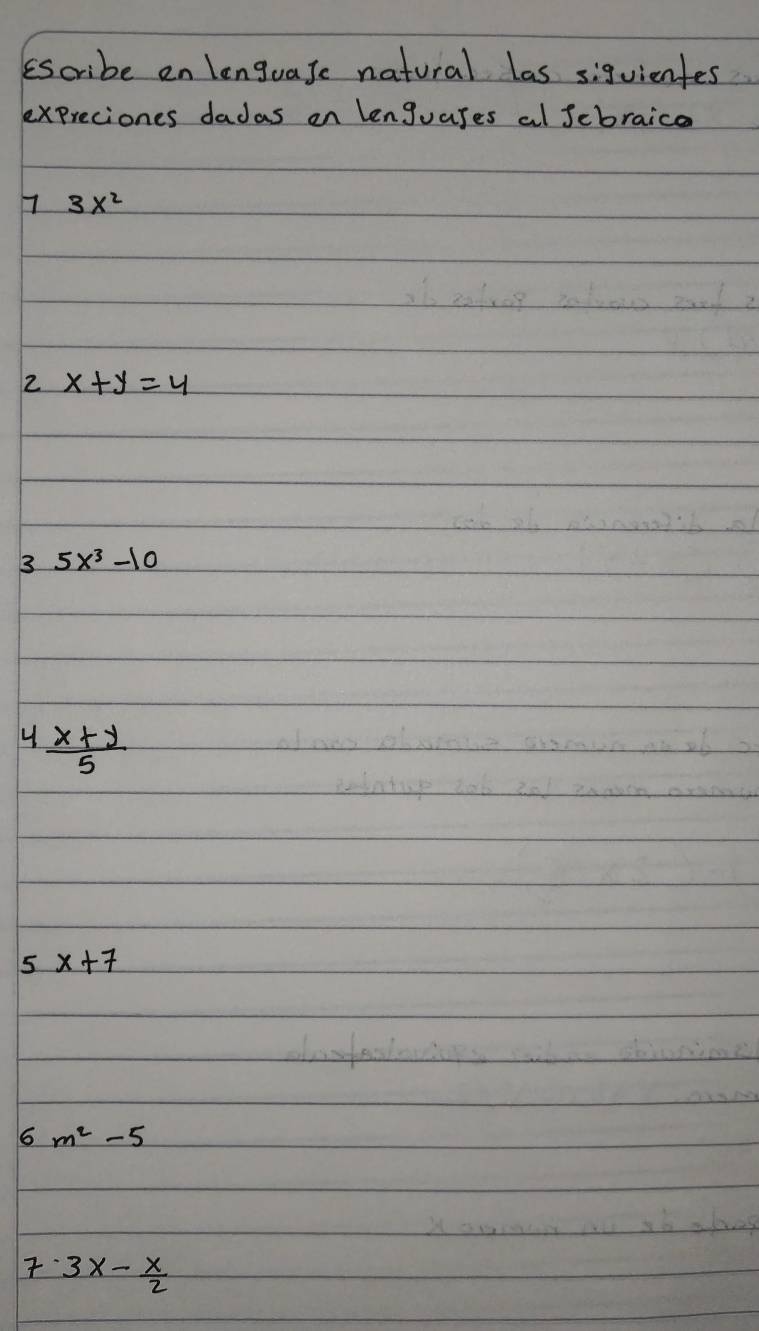 Escribe en lenguaje natural las siguientes
expreciones dadas en lenguajes al jebraico
1 3x²
2 x+y=4
3 5x³-10
4 x+y/5
5 x+7
6 m²-5
7·3x-x/2